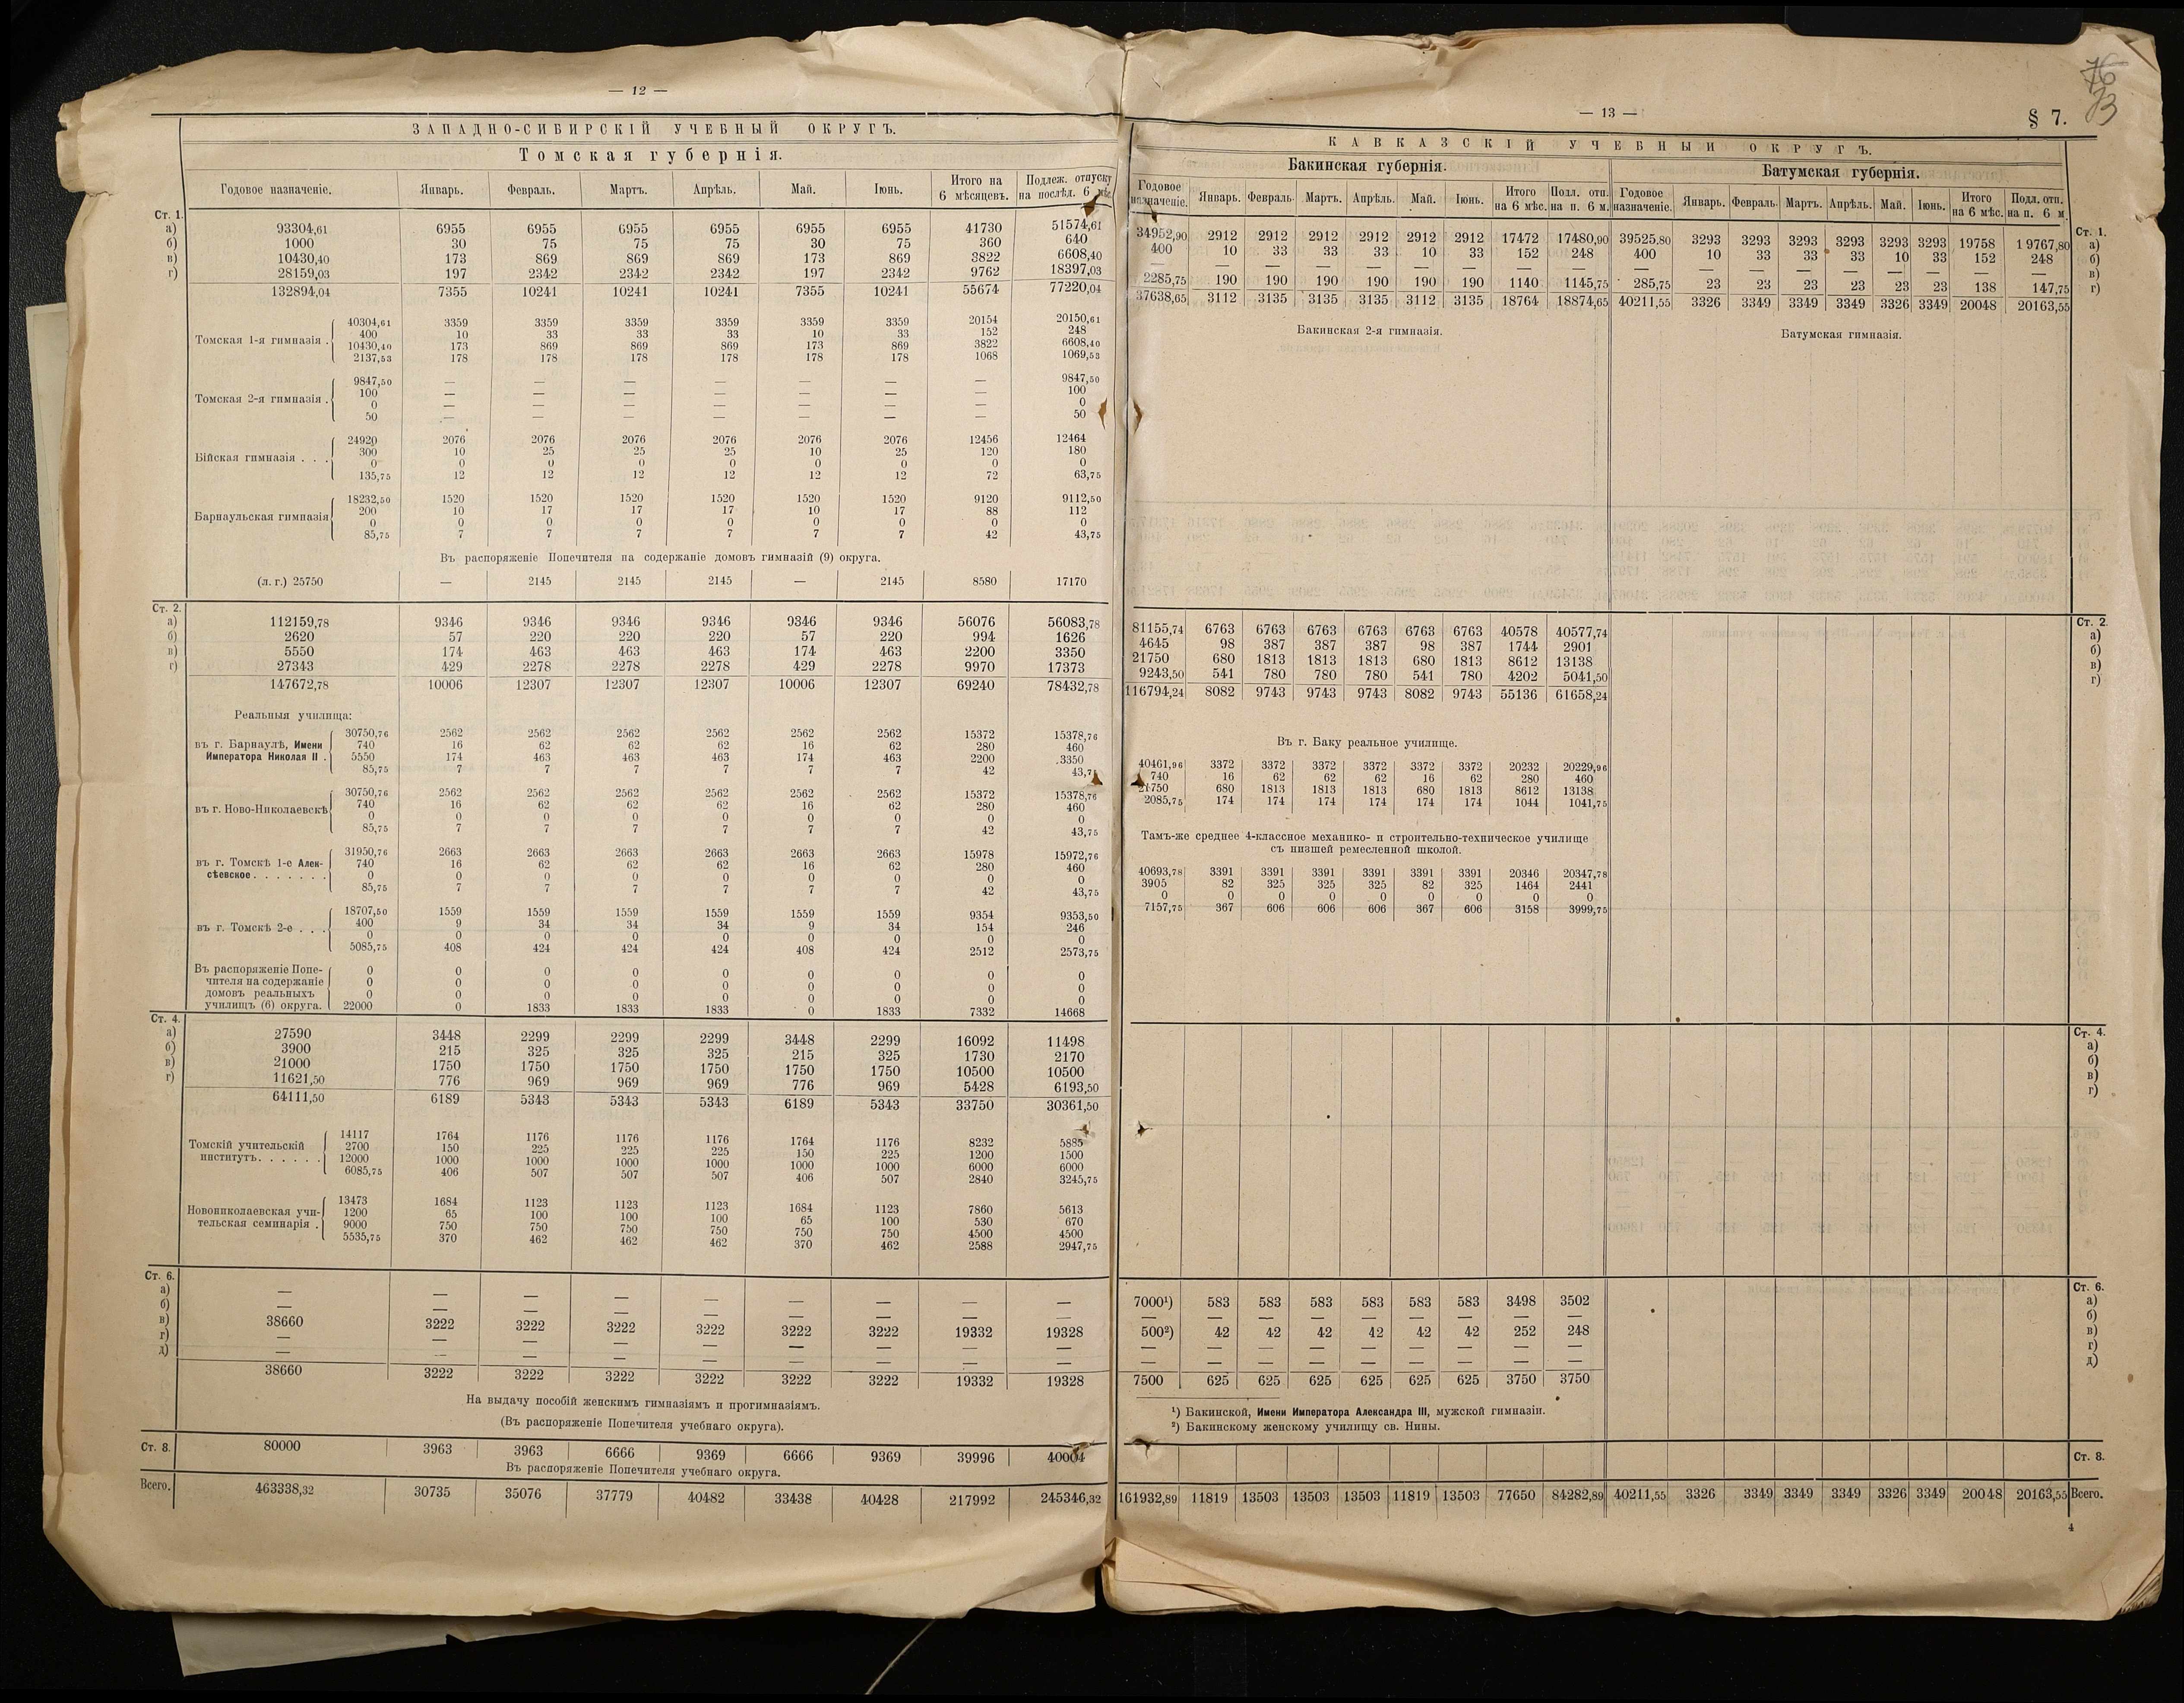 — 12 —
ЗАПАДНО-СИБИРСКІЙ УЧЕБНЫЙ ОКРУГЪ.
Томская губернія.
Годовое назначеніе. Январь. Февраль. Мартъ. Апрѣль. Май. Іюнь. Итого на 6 мѣсяцевъ. Подлеж. отпуску на послѣд. 6 мѣс.
Ст. 1.
а) 93304,61 6955 6955 6955 6955 6955 6955 41730 51574,61
б) 1000 30 75 75 75 30 75 360 640
в) 10430,40 173 869 869 869 173 869 3822 6608,40
г) 28159,03 197 2342 2342 2342 197 2342 9762 18397,03
132894,04 7355 10241 10241 10241 7355 10241 55674 77220,04
Томская 1-я гимназія .
40304,61 3359 3359 3359 3359 3359 3359 20154 20150,61
400 10 33 33 33 10 33 152 248
10430,40 173 869 869 869 173 869 3822 6608,40
2137,53 178 178 178 178 178 178 1068 1069,53
Томская 2-я гимназія .
9847,50 — — — — — — — 9847,50
100 — — — — — — — 100
0 — — — — — — — 0
50 — — — — — — — 50
Бійская гимназія . . .
24920 2076 2076 2076 2076 2076 2076 12456 12464
300 10 25 25 25 10 25 120 180
0 0 0 0 0 0 0 0 0
135,75 12 12 12 12 12 12 72 63,75
Барнаульская гимназія
18232,50 1520 1520 1520 1520 1520 1520 9120 9112,50
200 10 17 17 17 10 17 88 112
0 0 0 0 0 0 0 0 0
85,75 7 7 7 7 7 7 42 43,75
Въ распоряженіе Попечителя на содержаніе домовъ гимназій (9) округа.
(л. г.) 25750 — 2145 2145 2145 — 2145 8580 17170
Ст. 2.
а) 112159,78 9346 9346 9346 9346 9346 9346 56076 56083,78
б) 2620 57 220 220 220 57 220 994 1626
в) 5550 174 463 463 463 174 463 2200 3350
г) 27343 429 2278 2278 2278 429 2278 9970 17373
147672,78 10006 12307 12307 12307 10006 12307 69240 78432,78
Реальныя училища:
въ г. Барнаулѣ, Имени
Императора Николая II .
30750,76 2562 2562 2562 2562 2562 2562 15372 15378,76
740 16 62 62 62 16 62 280 460
5550 174 463 463 463 174 463 2200 3350
85,75 7 7 7 7 7 7 42 43,7
въ г. Ново-Николаевскѣ
30750,76 2562 2562 2562 2562 2562 2562 15372 15378,76
740 16 62 62 62 16 62 280 460
0 0 0 0 0 0 0 0 0
85,75 7 7 7 7 7 7 42 43,75
въ г. Томскѣ 1-е Алек-
сѣевское . . . . . . .
31950,76 2663 2663 2663 2663 2663 2663 15978 15972,76
740 16 62 62 62 16 62 280 460
0 0 0 0 0 0 0 0 0
85,75 7 7 7 7 7 7 42 43,75
въ г. Томскѣ 2-е . . .
18707,50 1559 1559 1559 1559 1559 1559 9354 9353,50
400 9 34 34 34 9 34 154 246
0 0 0 0 0 0 0 0 0
5085,75 408 424 424 424 408 424 2512 2573,75
Въ распоряженіе Попе-
чителя на содержаніе
домовъ реальныхъ
училищъ (6) округа.
0 0 0 0 0 0 0 0 0
0 0 0 0 0 0 0 0 0
0 0 0 0 0 0 0 0 0
22000 0 1833 1833 1833 0 1833 7332 14668
Ст. 4.
а) 27590 3448 2299 2299 2299 3448 2299 16092 11498
б) 3900 215 325 325 325 215 325 1730 2170
в) 21000 1750 1750 1750 1750 1750 1750 10500 10500
г) 11621,50 776 969 969 969 776 969 5428 6193,50
64111,50 6189 5343 5343 5343 6189 5343 33750 30361,50
Томскій учительскій
институтъ . . . . . .
14117 1764 1176 1176 1176 1764 1176 8232 5885
2700 150 225 225 225 150 225 1200 1500
12000 1000 1000 1000 1000 1000 1000 6000 6000
6085,75 406 507 507 507 406 507 2840 3245,75
Новониколаевская учи-
тельская семинарія .
13473 1684 1123 1123 1123 1684 1123 7860 5613
1200 65 100 100 100 65 100 530 670
9000 750 750 750 750 750 750 4500 4500
5535,75 370 462 462 462 370 462 2588 2947,75
Ст. 6.
а) — — — — — — — — —
б) — — — — — — — — —
в) 38660 3222 3222 3222 3222 3222 3222 19332 19328
г) — — — — — — — — —
д) — — — — — — — — —
38660 3222 3222 3222 3222 3222 3222 19332 19328
На выдачу пособій женскимъ гимназіямъ и прогимназіямъ.
(Въ распоряженіе Попечителя учебнаго округа).
Ст. 8. 80000 3963 3963 6666 9369 6666 9369 39996 40004
Въ распоряженіе Попечителя учебнаго округа.
Всего. 463338,32 30735 35076 37779 40482 33438 40428 217992 245346,32
76
— 13 —
§ 7.
КАВКАЗСКІЙ УЧЕБНЫЙ ОКРУГЪ.
Бакинская губернія. Батумская губернія.
Годовое назначеніе. Январь. Февраль. Мартъ. Апрѣль. Май. Іюнь. Итого на 6 мѣс. Подл. отп. на п. 6 м. Годовое назначеніе. Январь. Февраль. Мартъ. Апрѣль. Май. Іюнь. Итого на 6 мѣс. Подл. отп. на п. 6 м.
Ст. 1.
34952,90 2912 2912 2912 2912 2912 2912 17472 17480,90 39525,80 3293 3293 3293 3293 3293 3293 19758 19767,80 а)
400 10 33 33 33 10 33 152 248 400 10 33 33 33 10 33 152 248 б)
— — — — — — — — — — — — — — — — — — в)
2285,75 190 190 190 190 190 190 1140 1145,75 285,75 23 23 23 23 23 23 138 147,75 г)
37638,65 3112 3135 3135 3135 3112 3135 18764 18874,65 40211,55 3326 3349 3349 3349 3326 3349 20048 20163,55
Бакинская 2-я гимназія. Батумская гимназія.
Ст. 2.
81155,74 6763 6763 6763 6763 6763 6763 40578 40577,74 а)
4645 98 387 387 387 98 387 1744 2901 б)
21750 680 1813 1813 1813 680 1813 8612 13138 в)
9243,50 541 780 780 780 541 780 4202 5041,50 г)
116794,24 8082 9743 9743 9743 8082 9743 55136 61658,24
Въ г. Баку реальное училище.
40461,96 3372 3372 3372 3372 3372 3372 20232 20229,96
740 16 62 62 62 16 62 280 460
21750 680 1813 1813 1813 680 1813 8612 13138
2085,75 174 174 174 174 174 174 1044 1041,75
Тамъ-же среднее 4-классное механико- и строительно-техническое училище
съ низшей ремесленной школой.
40693,78 3391 3391 3391 3391 3391 3391 20346 20347,78
3905 82 325 325 325 82 325 1464 2441
0 0 0 0 0 0 0 0 0
7157,75 367 606 606 606 367 606 3158 3999,75
Ст. 4.
а)
б)
в)
г)
Ст. 6.
7000¹) 583 583 583 583 583 583 3498 3502 а)
— — — — — — — — — б)
500²) 42 42 42 42 42 42 252 248 в)
— — — — — — — — — г)
— — — — — — — — — д)
7500 625 625 625 625 625 625 3750 3750
¹) Бакинской, Имени Императора Александра III, мужской гимназіи.
²) Бакинскому женскому училищу св. Нины.
Ст. 8.
161932,89 11819 13503 13503 13503 11819 13503 77650 84282,89 40211,55 3326 3349 3349 3349 3326 3349 20048 20163,55 Всего.
4